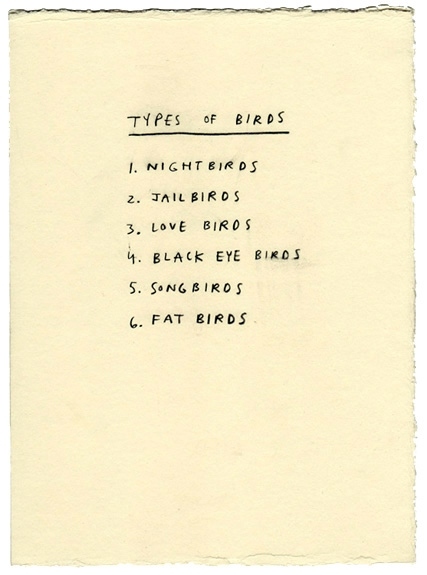 TYPES OF BIRDS
1. NIGHTBIRDS
2. JAILBIRDS
3. LOVE BIRDS
4. BLACK EYE BIRDS
5. SONGBIRDS
6. FAT BIRDS